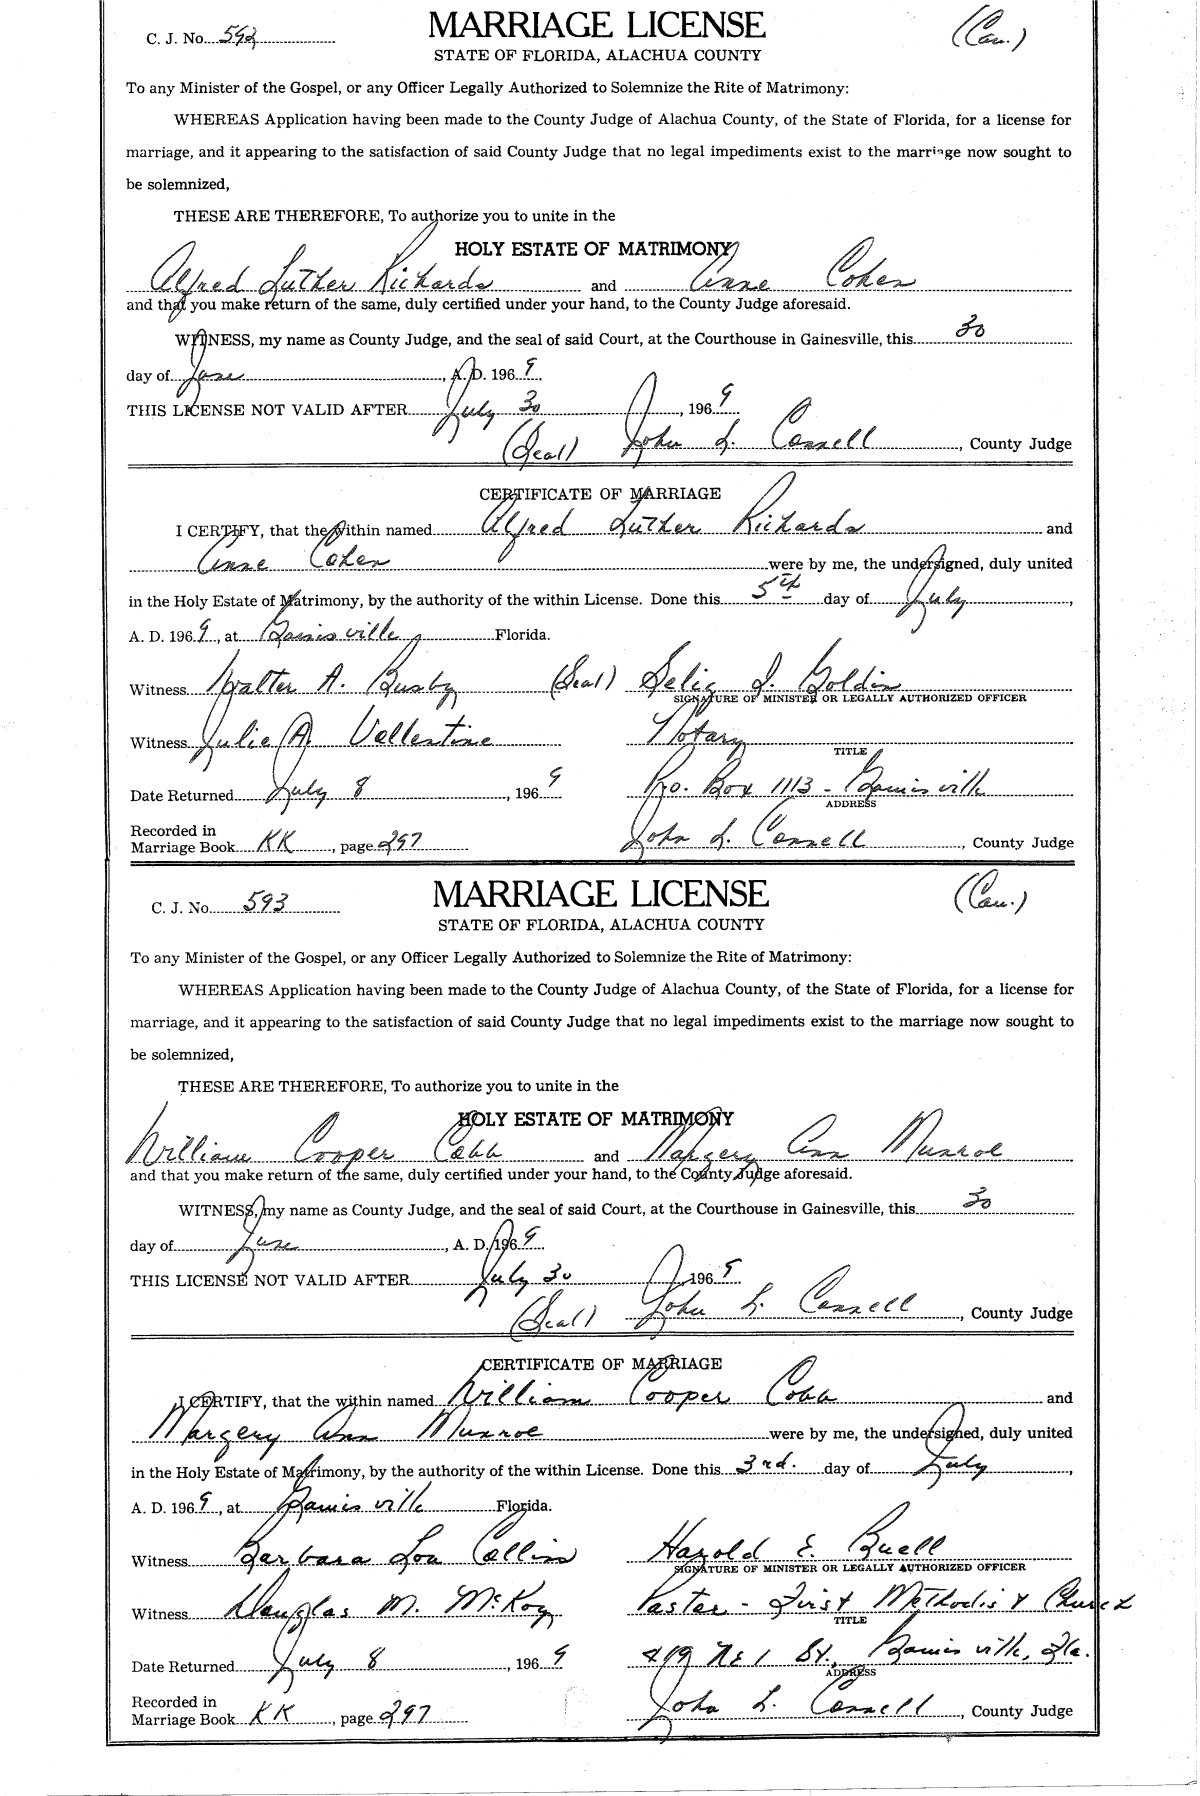 C. J. No. 592 MARRIAGE LICENSE (Cau.)
STATE OF FLORIDA, ALACHUA COUNTY
To any Minister of the Gospel, or any Officer Legally Authorized to Solemnize the Rite of Matrimony:
WHEREAS Application having been made to the County Judge of Alachua County, of the State of Florida, for a license for
marriage, and it appearing to the satisfaction of said County Judge that no legal impediments exist to the marriage now sought to
be solemnized,
THESE ARE THEREFORE, To authorize you to unite in the
HOLY ESTATE OF MATRIMONY
Alfred Luther Richards and Anne Cohen
and that you make return of the same, duly certified under your hand, to the County Judge aforesaid.
WITNESS, my name as County Judge, and the seal of said Court, at the Courthouse in Gainesville, this 30
day of June, A. D. 1969.
THIS LICENSE NOT VALID AFTER July 30, 1969
(Seal) John L. Connell, County Judge
CERTIFICATE OF MARRIAGE
I CERTIFY, that the within named Alfred Luther Richards and
Anne Cohen were by me, the undersigned, duly united
in the Holy Estate of Matrimony, by the authority of the within License. Done this 5th day of July,
A. D. 1969, at Gainesville, Florida.
Witness Walter A. Busby (Seal) Selig I. Goldin
SIGNATURE OF MINISTER OR LEGALLY AUTHORIZED OFFICER
Witness Julie A. Vallentine Notary
TITLE
Date Returned July 8, 1969 P.o. Box 1113 - Gainesville
ADDRESS
Recorded in
Marriage Book KK, page 297 John L. Connell, County Judge
C. J. No. 593 MARRIAGE LICENSE (Cau.)
STATE OF FLORIDA, ALACHUA COUNTY
To any Minister of the Gospel, or any Officer Legally Authorized to Solemnize the Rite of Matrimony:
WHEREAS Application having been made to the County Judge of Alachua County, of the State of Florida, for a license for
marriage, and it appearing to the satisfaction of said County Judge that no legal impediments exist to the marriage now sought to
be solemnized,
THESE ARE THEREFORE, To authorize you to unite in the
HOLY ESTATE OF MATRIMONY
William Cooper Cobb and Margery Ann Munroe
and that you make return of the same, duly certified under your hand, to the County Judge aforesaid.
WITNESS, my name as County Judge, and the seal of said Court, at the Courthouse in Gainesville, this 30
day of June, A. D. 1969.
THIS LICENSE NOT VALID AFTER July 30, 1969
(Seal) John L. Connell, County Judge
CERTIFICATE OF MARRIAGE
I CERTIFY, that the within named William Cooper Cobb and
Margery Ann Munroe were by me, the undersigned, duly united
in the Holy Estate of Matrimony, by the authority of the within License. Done this 3rd. day of July,
A. D. 1969, at Gainesville Florida.
Witness Barbara Lou Collins Harold E. Buell
SIGNATURE OF MINISTER OR LEGALLY AUTHORIZED OFFICER
Witness Douglas M. McKoy Pastor - First Methodist Church
TITLE
Date Returned July 8, 1969 419 NE 1 St., Gainesville, Fla.
ADDRESS
Recorded in
Marriage Book KK, page 297 John L. Connell, County Judge